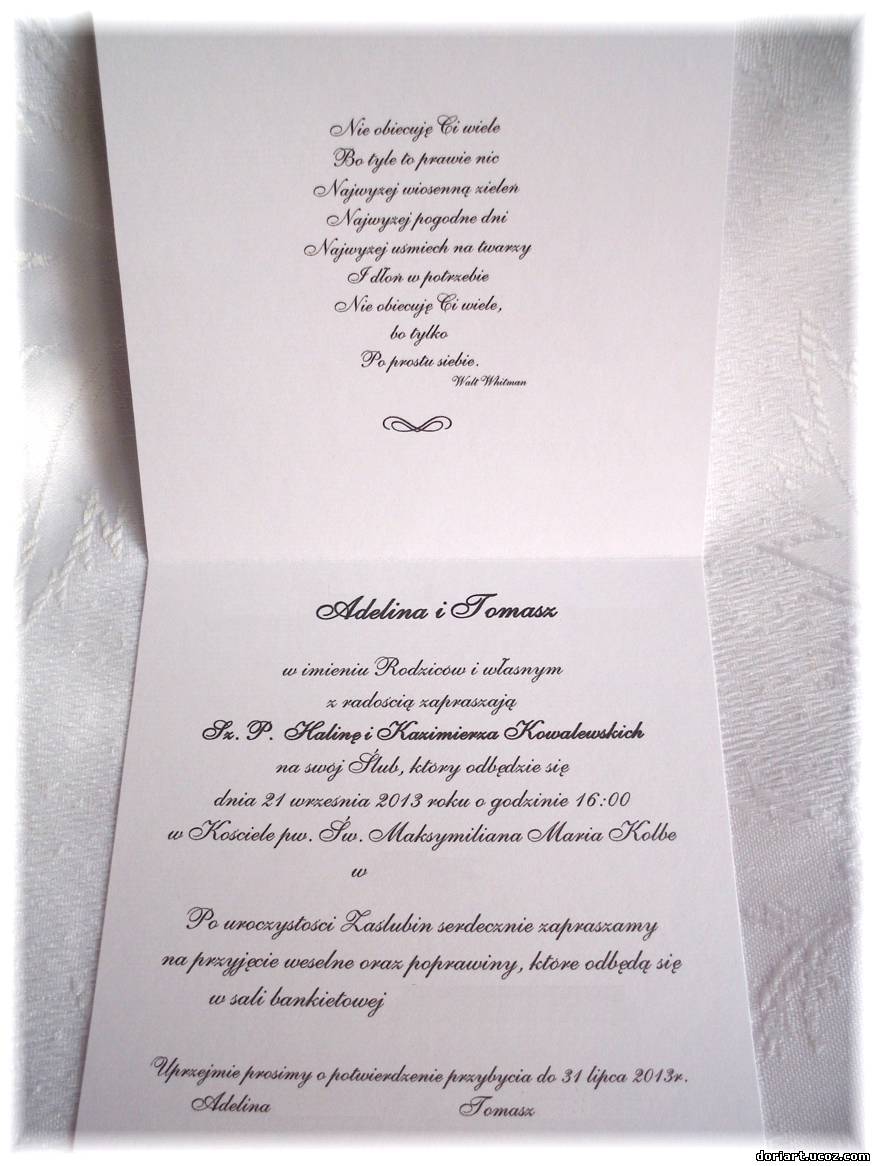 Nie obiecuję Ci wiele
Bo tyle to prawie nic
Najwyzej wiosenną zieleń
Najwyzej pogodne dni
Najwyzej uśmiech na twarzy
I dłoń w potrzebie
Nie obiecuję Ci wiele,
bo tylko
Po prostu siebie.
Walt Whitman
Adelina i Tomasz
w imieniu Rodziców i własnym
z radością zapraszają
Sz. P. Halinę i Kazimierza Kowalewskich
na swój Ślub, który odbędzie się
dnia 21 września 2013 roku o godzinie 16:00
w Kościele pw. Św. Maksymiliana Maria Kolbe
w
Po uroczystości Zaślubin serdecznie zapraszamy
na przyjęcie weselne oraz poprawiny, które odbędą się
w sali bankietowej
Uprzejmie prosimy o potwierdzenie przybycia do 31 lipca 2013r.
Adelina Tomasz
doriart.ucoz.com